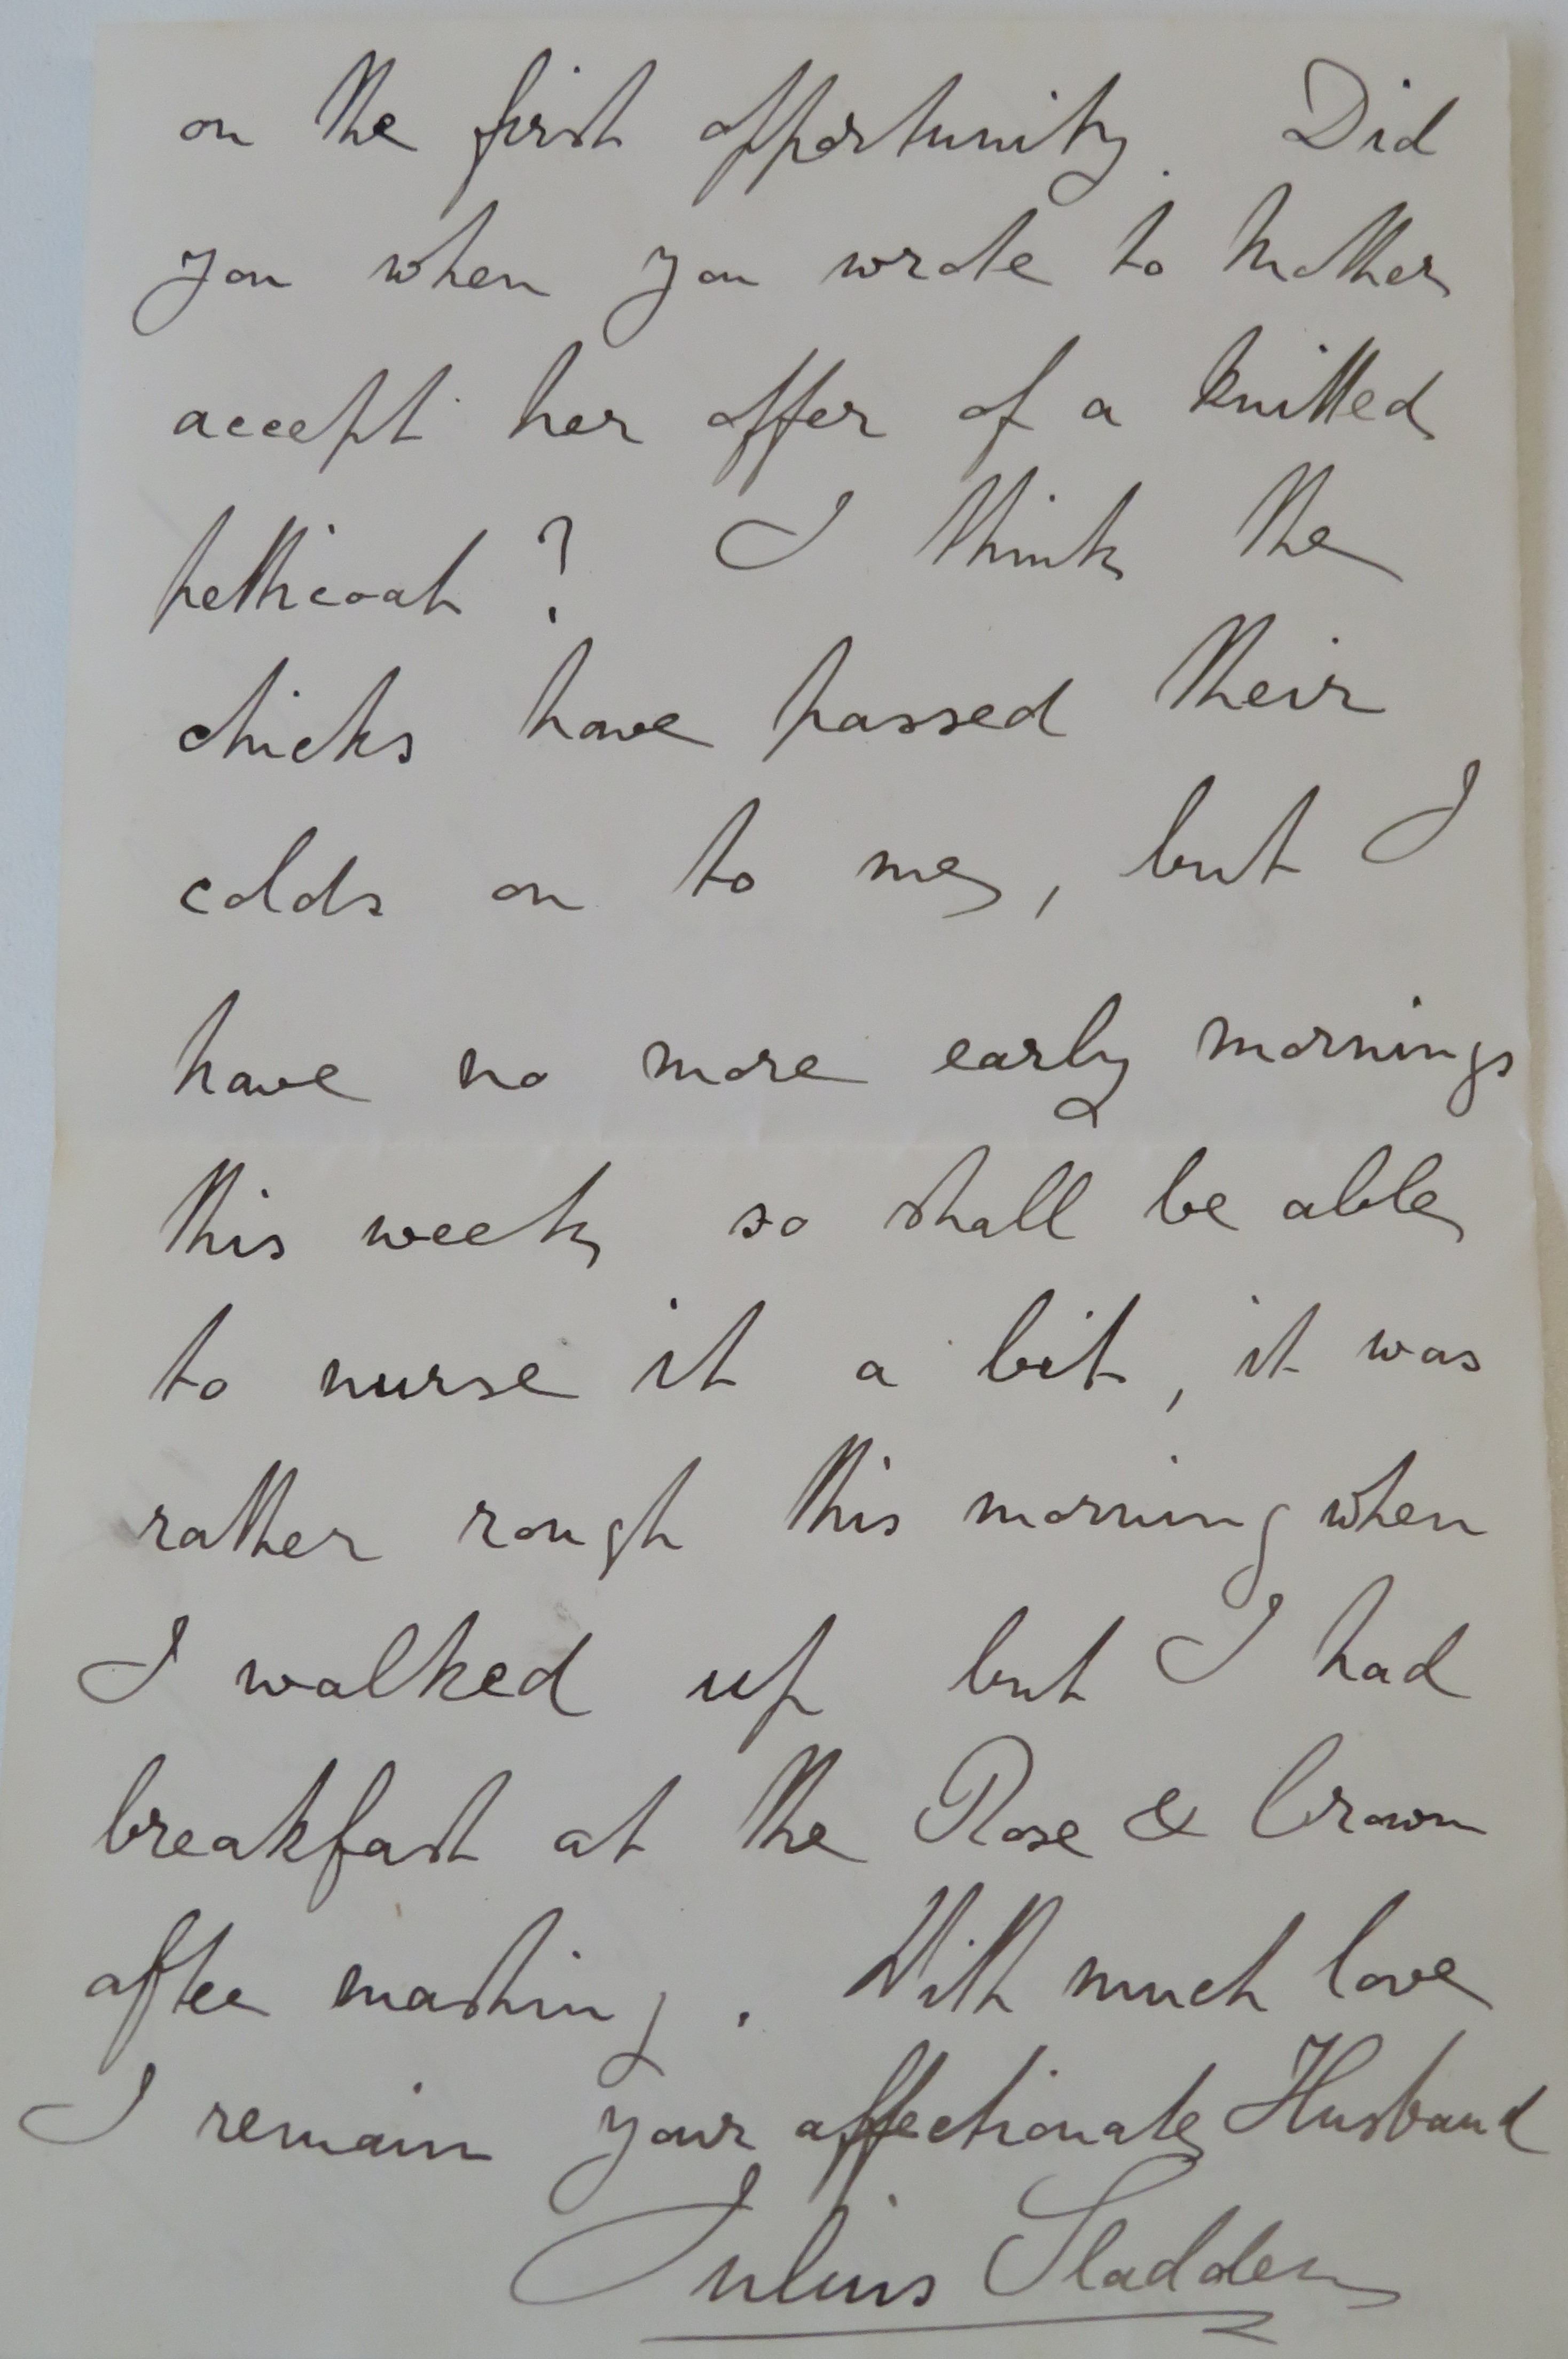 on the first opportunity. Did
you when you wrote to Mother
accept her offer of a knitted
petticoat? I think the
chicks have passed their
colds on to me, but I
have no more early mornings
this week so shall be able
to nurse it a bit, it was
rather rough this morning when
I walked up but I had
breakfast at the Rose & Crown
after mashing. With much love
I remain your affectionate Husband
Julius Sladden